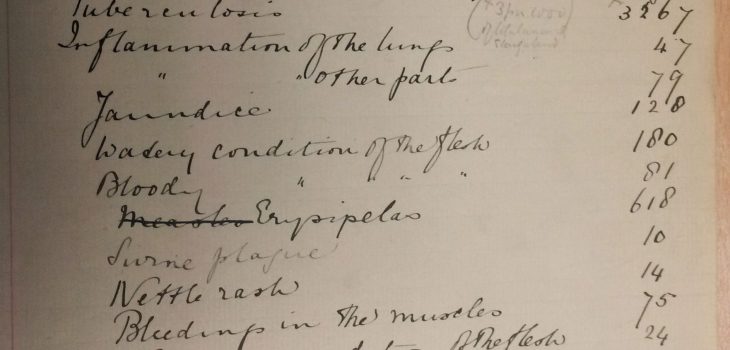 Tuberculosis 3267
(+ 3 per 1000
of
Inflammation of the lungs 47
" " other parts 79
Jaundice 128
Watery condition of the flesh 180
Bloody " " " " 81
Measles Erysipelas 618
Swine plague 10
Nettle rash 14
Bleeding in the muscles 75
of the flesh 24